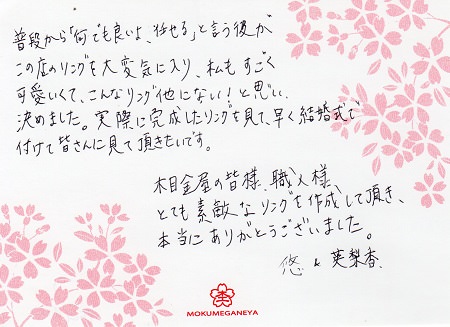 普段から「何でも良いよ、任せる」と言う彼が
この店のリングを大変気に入り、私もすごく
可愛いくて、こんなリング他にない！と思い、
決めました。実際に完成したリングを見て、早く結婚式で
付けて皆さんに見て頂きたいです。
木目金屋の皆様、職人様、
とても素敵なリングを作成して頂き、
本当にありがとうございました。
悠 & 英梨香
MOKUMEGANEYA